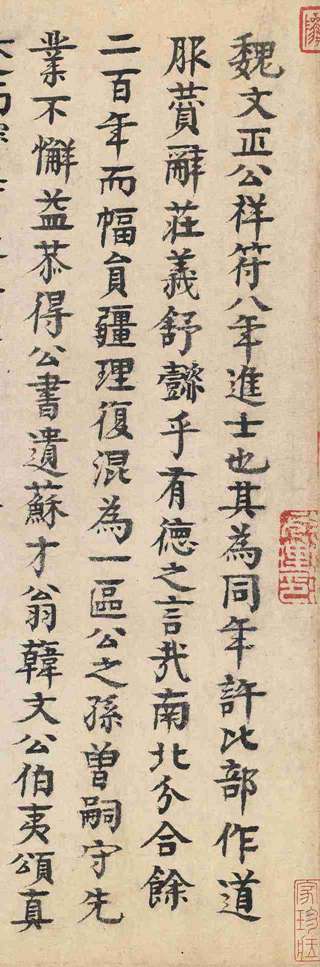 魏文正公祥符八年進士也其為同年許比部作道
服贊辭莊義舒懿乎有德之言哉南北分合餘
二百年而幅員疆理復混為一區公之孫曾嗣守先
業不懈益恭得公書遺蘇才翁韓文公伯夷頌真